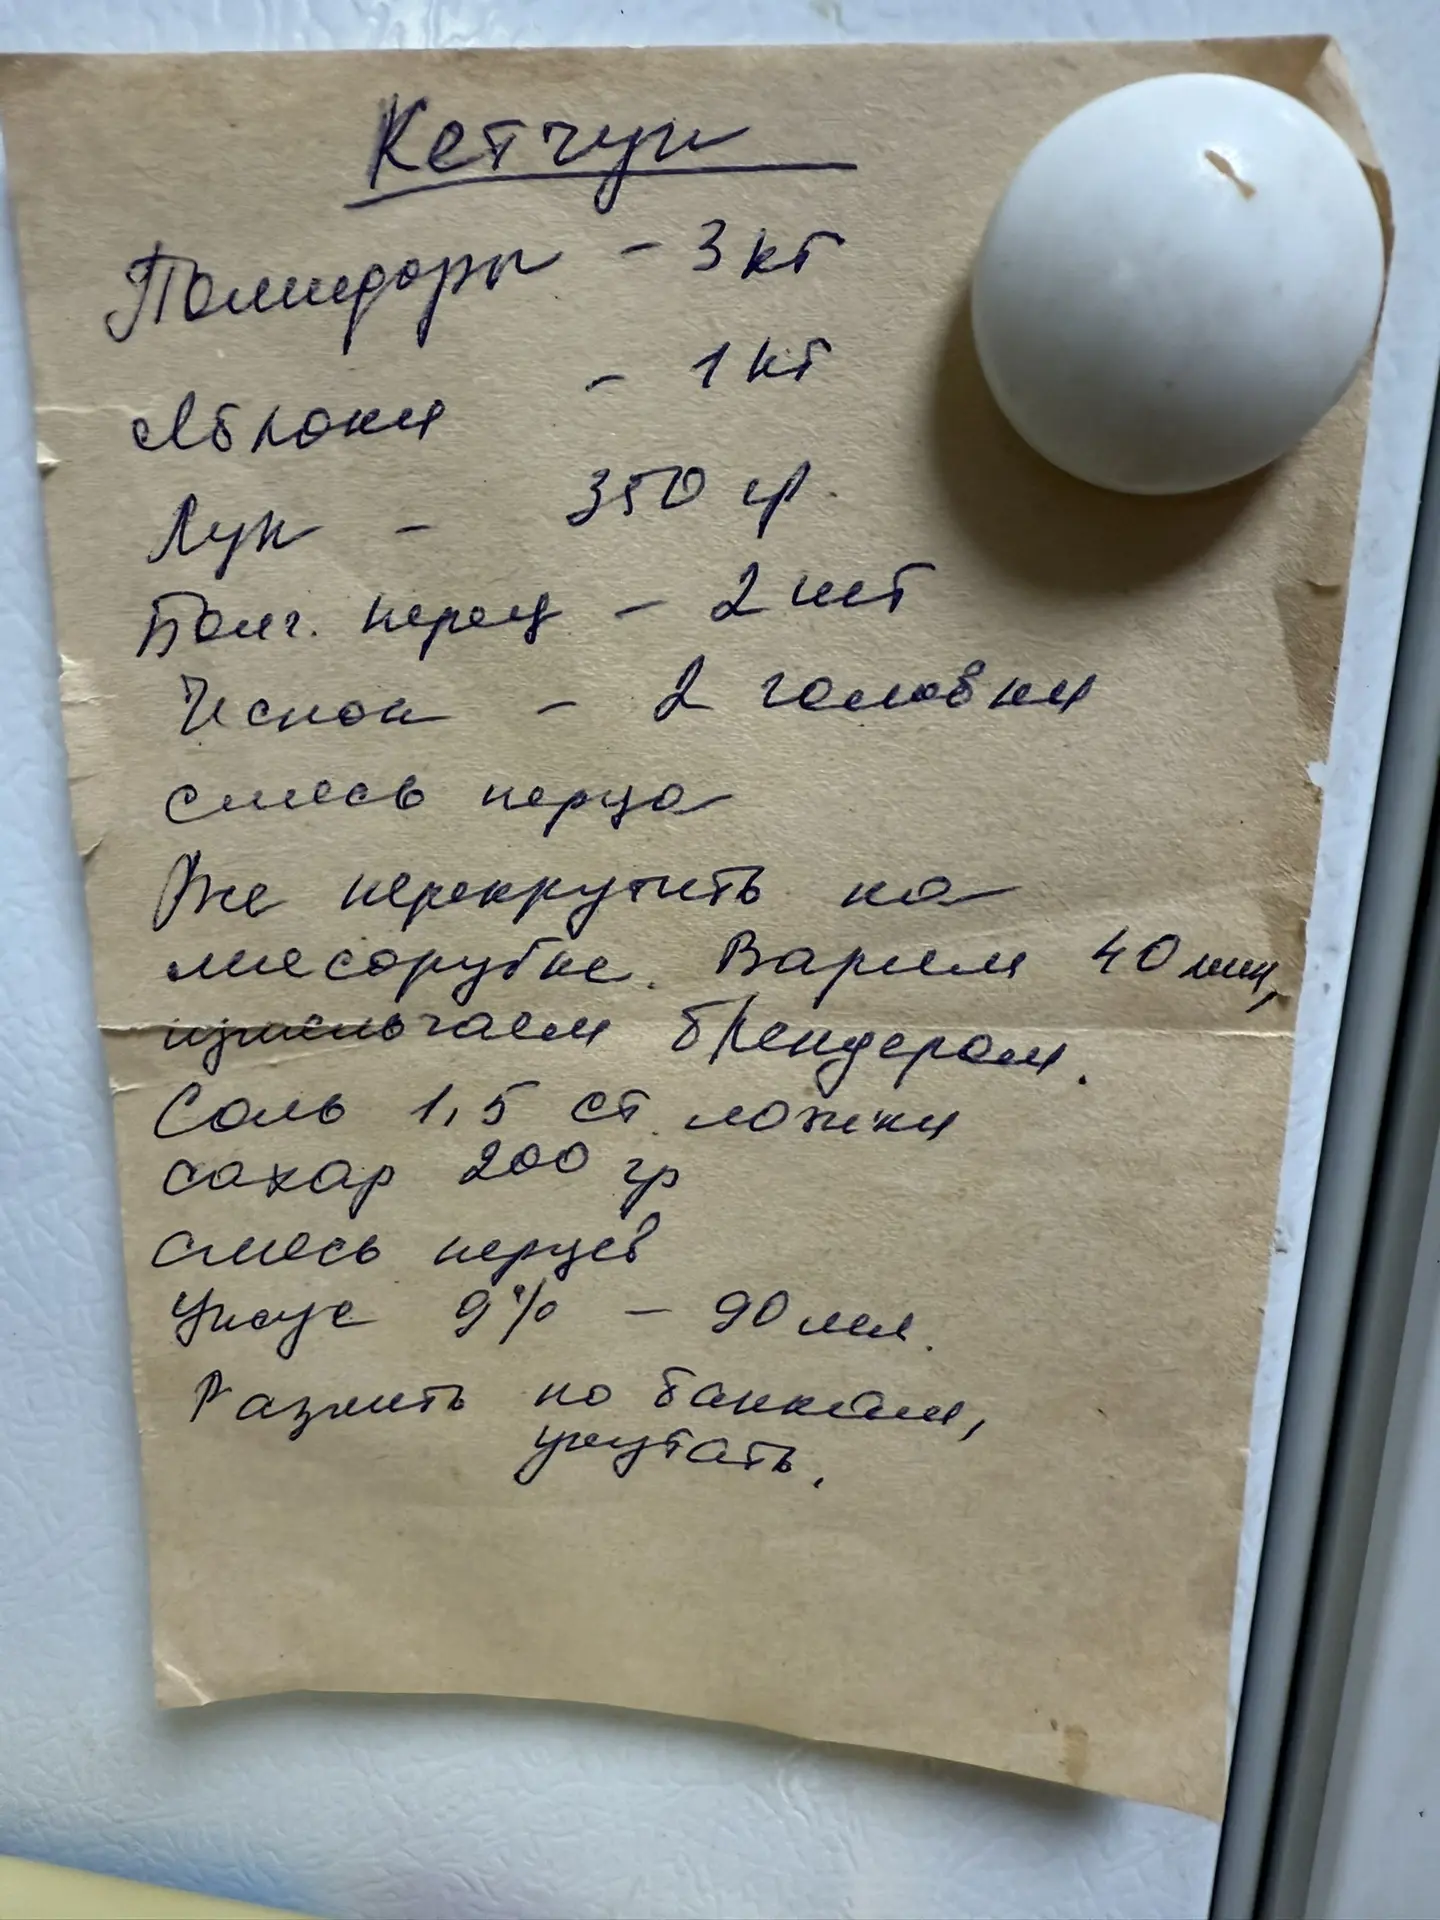 Кетчуп
Помидоры - 3 кг
Яблоки - 1 кг
Лук - 350 гр.
Болг. перец - 2 шт
Чеснок - 2 головки
смесь перца
Все перекрутить на
мясорубке. Варим 40 мин,
измельчаем блендером.
Соль 1,5 ст. ложки
сахар 200 гр
смесь перцев
Уксус 9% - 90 мл.
Разлить по банкам,
укутать.